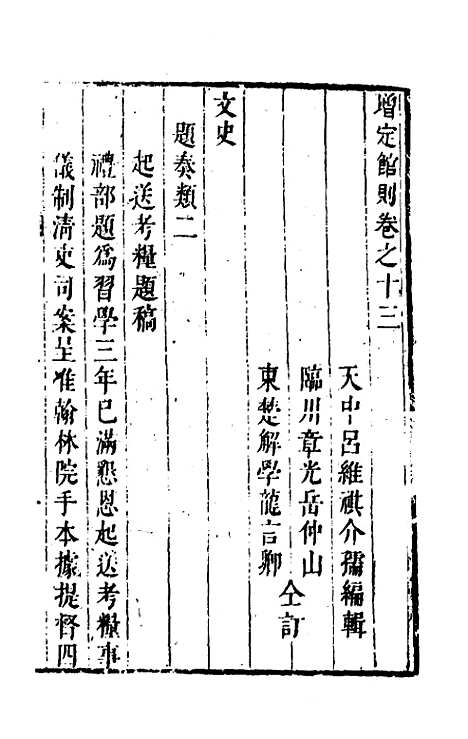 增定館則卷之十三
天中呂維祺介孺編輯
臨川章光岳仲山
東楚解學龍言卿
仝訂
文史
題奏類二
起送考糧題稿
禮部題爲習學三年已滿懇恩起送考糧事
儀制清吏司案呈准翰林院手本據提督四